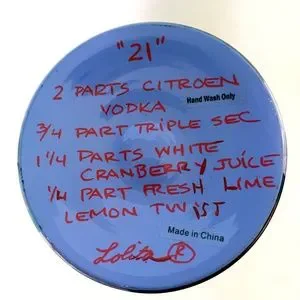 "21"
2 PARTS CITROEN
VODKA
Hand Wash Only
3/4 PART TRIPLE SEC
1 1/4 PARTS WHITE
CRANBERRY JUICE
1/4 PART FRESH LIME
LEMON TWIST
Made in China
Lolita ®